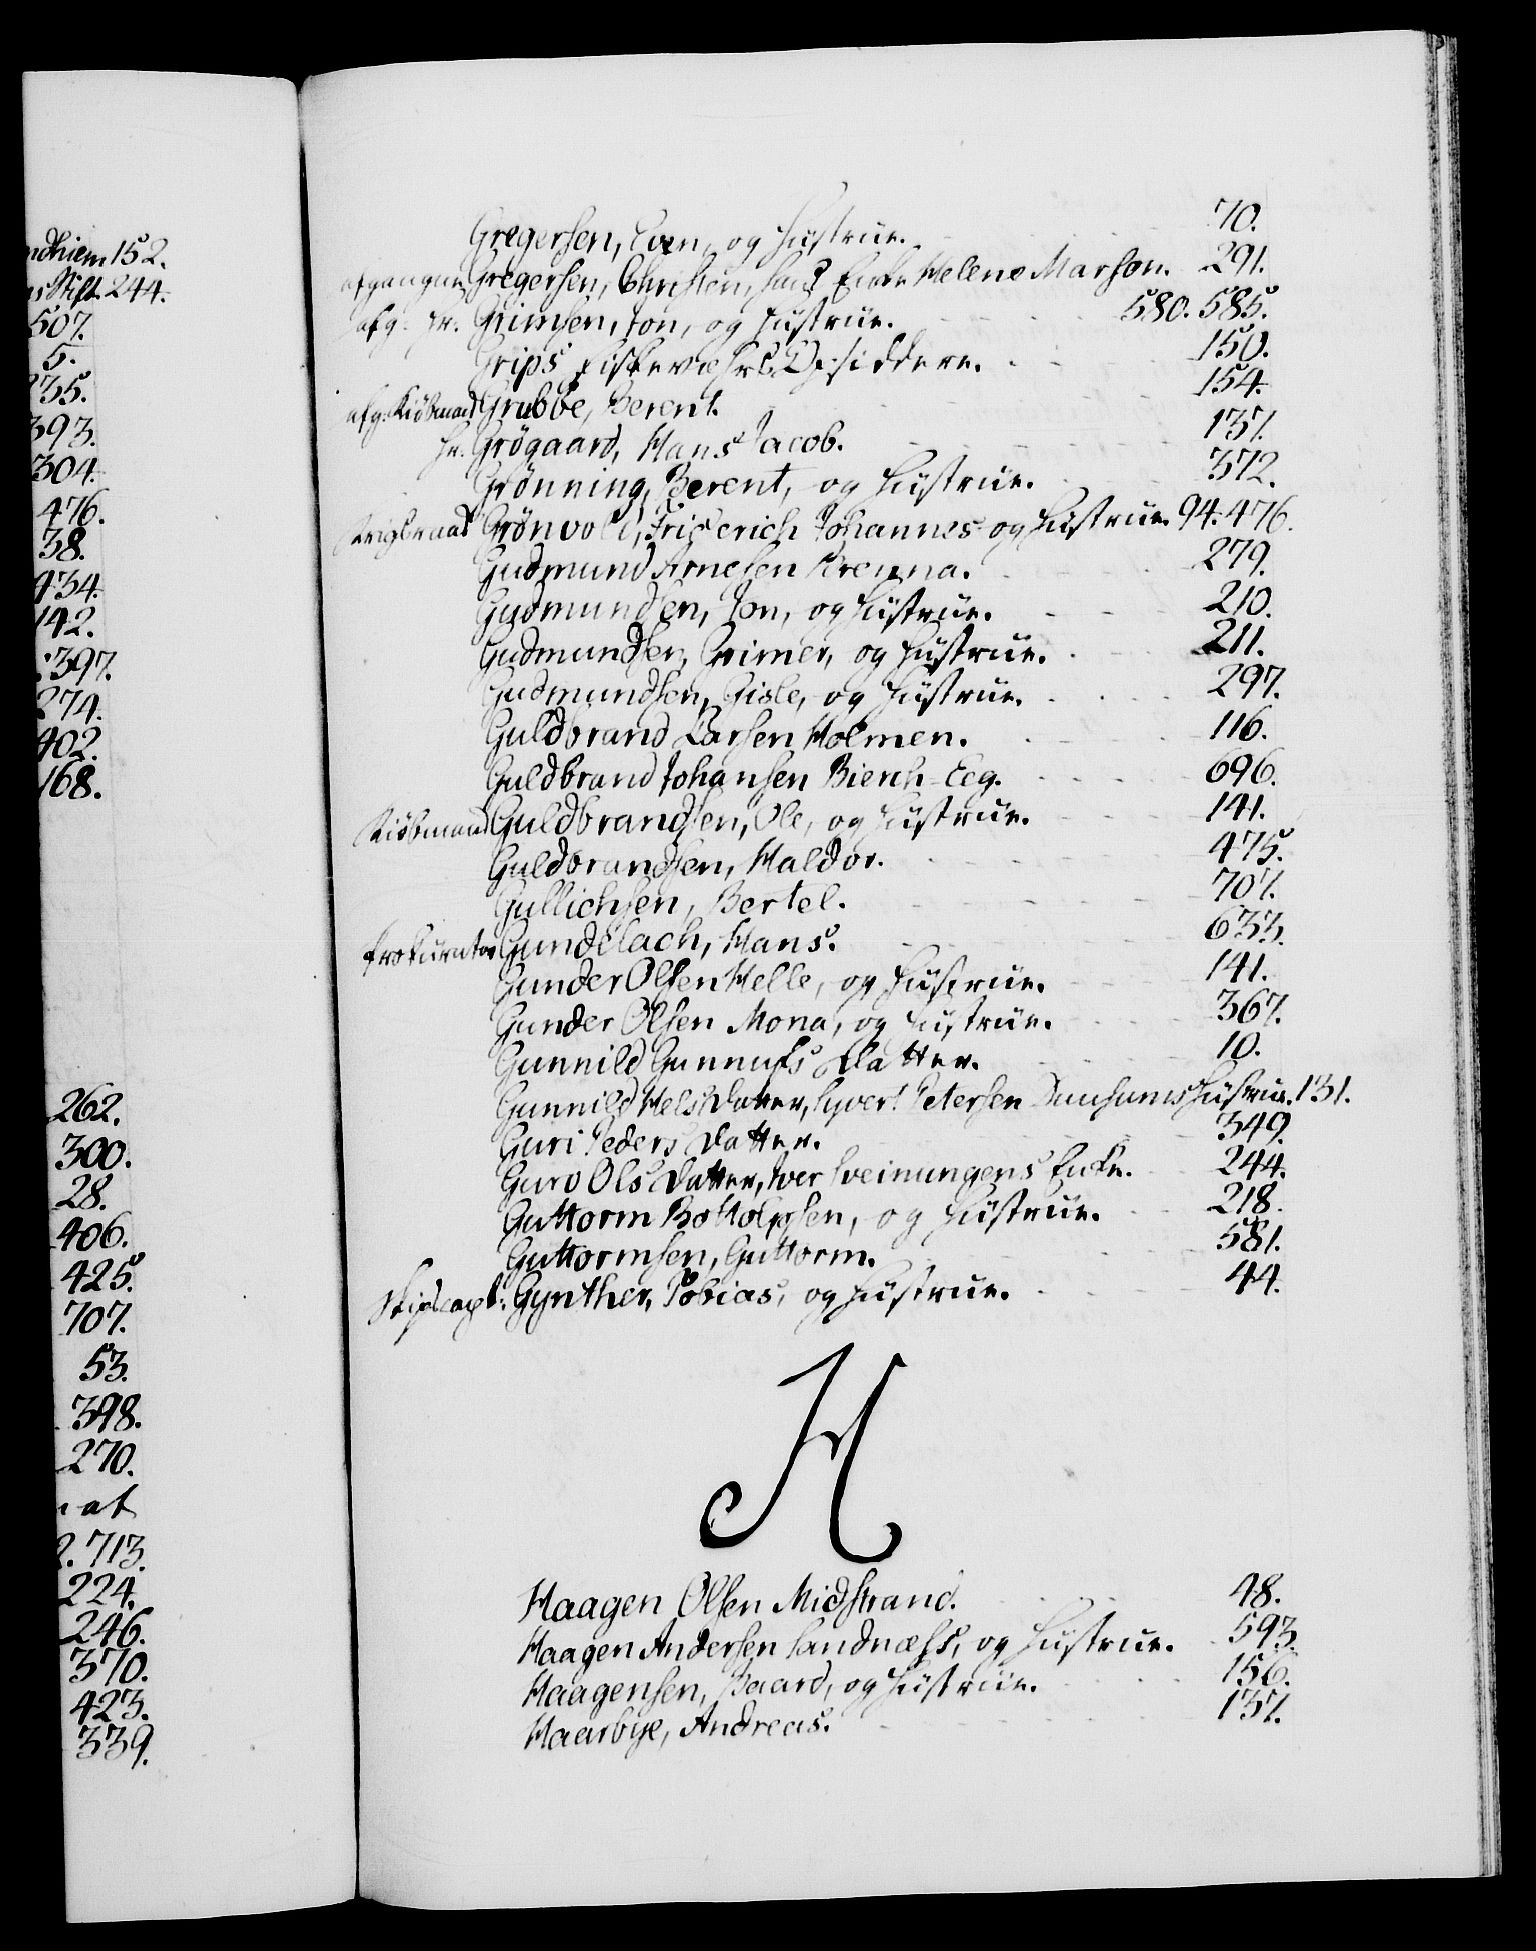 ndhiem 152.
s Stift. 244.
507.
5.
235.
393.
304.
476.
38.
434.
142.
397.
274.
402.
168.
262.
300.
28.
406.
425.
707.
53.
398.
270.
at
2. 713.
224.
246.
370.
423.
339.
Gregersen, Even, og Hustrue. 70.
afgangne Gregersen, Christen, hans Enke Helene Marson. 291.
afg. Hr. Grimsen, Jon, og Hustrue. 580. 585.
Grips Fiskeværs Opsiddere. 150.
afg. Kiöbmand Grubbe, Berent. 154.
Hr. Grögaard, Hans Jacob. 137.
Grönning, Berent, og Hustrue. 372.
Krigsraad Grönvold, Friderich Johannes og Hustrue. 94. 476.
Gudmund Arnesen Krenna. 279.
Gudmundsen, Jon, og Hustrue. 210.
Gudmundsen, Grimer, og Hustrue. 211.
Gudmundsen, Gisle, og Hustrue. 297.
Guldbrand Larsen Holmen. 116.
Guldbrand Johansen Bierch-Eeg. 696.
Kiöbmand Guldbrandsen, Ole, og Hustrue. 141.
Guldbrandsen, Haldor. 475.
Gullichsen, Bertel. 707.
Prokurator Gundelach, Hans. 633.
Gunder Olsen Helle, og Hustrue. 141.
Gunder Olsen Mona, og Hustrue. 367.
Gunnild Gunnufs Datter. 10.
Gunnild Nels Datter, Syvert Petersen Hustrue. 131.
Guri Peders Datter. 349.
Guro Ols Datter, Iver Sveinungens Enke. 244.
Guttorm Bottolpsen, og Hustrue. 218.
Guttormsen, Guttorm. 581.
Skipscapt: Gynther, Tobias, og Hustrue. 44.
H
Haagen Olsen Midstrand. 48.
Haagen Andersen Sandnæss, og Hustrue. 593.
Haagensen, Baard, og Hustrue. 156.
Haarbye, Andreas. 137.